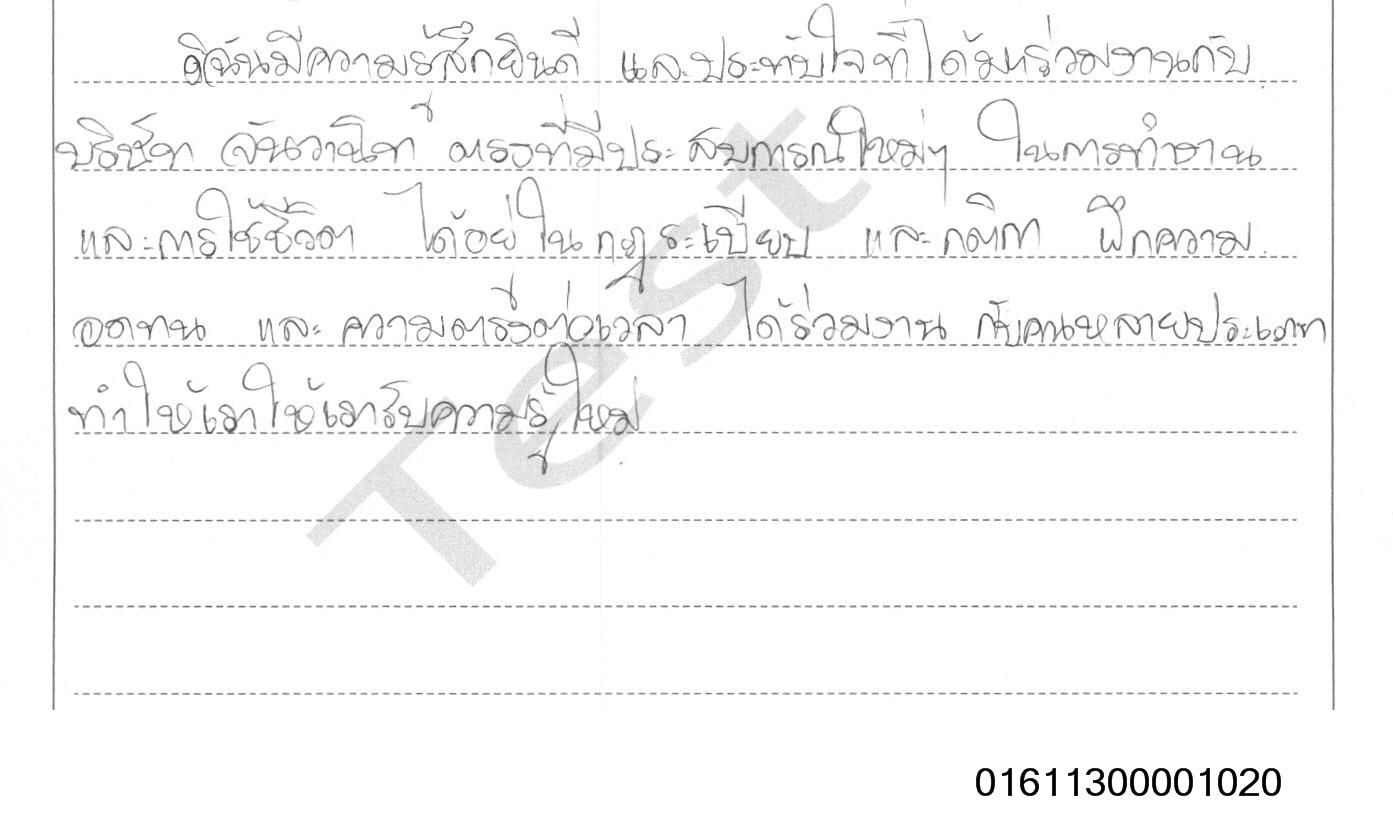 ดิฉันมีความรู้สึกยินดี และประทับใจที่ได้มาร่วมงานกับ
บริษัท จันวานิทย์ ตรงที่มีประสบการณ์ใหม่ๆ ในการทำงาน
และการใช้ชีวิต ได้อยู่ในกฎระเบียบ และกติกา ฝึกความ
อดทน และความตรงต่อเวลา ได้ร่วมงาน กับคนหลายประเภท
ทำให้เราให้เรารับความรู้ใหม่
Test
01611300001020